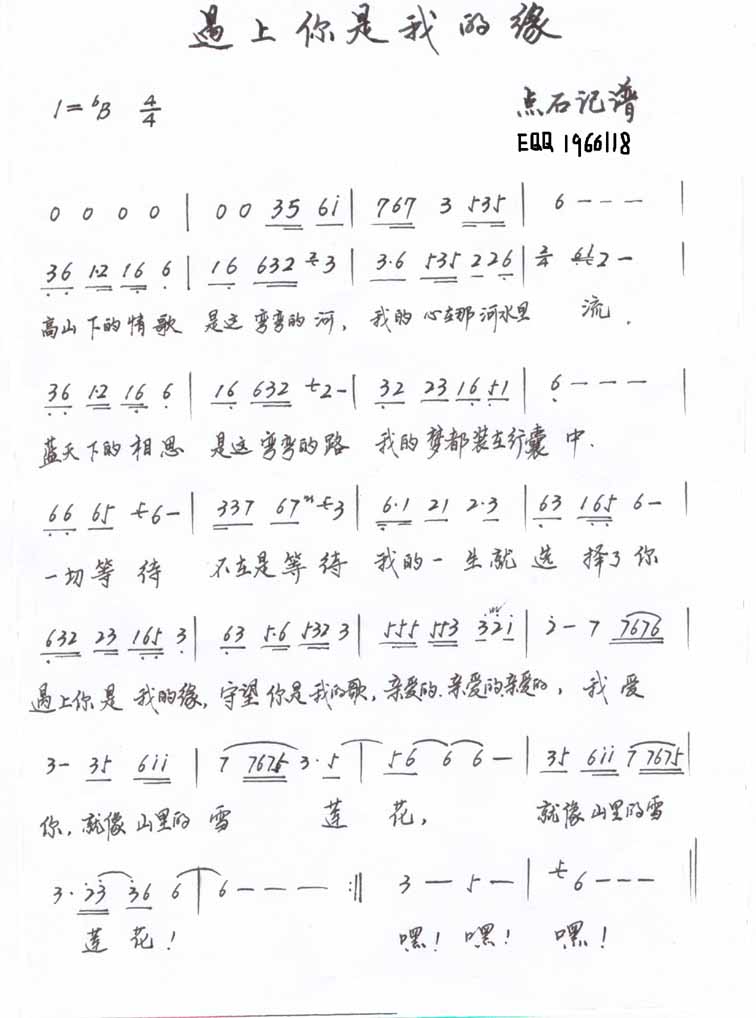 遇上你是我的缘
1=♭B 4/4
点石记谱
EQQ 1966118
0 0 0 0 | 0 0 35 6i | 767 3 535 | 6 - - - |
36 1·2 16 6 | 16 632 3 | 3·6 535 226 | 2/4 2 - |
高山下的情歌 是这弯弯的河, 我的心在那河水里 流.
36 1·2 16 6 | 16 632 2 - | 32 23 16 51 | 6 - - - |
蓝天下的相思 是这弯弯的路 我的梦都装在行囊中.
66 65 6 - | 337 67 3 | 6·1 21 2·3 | 63 165 6 - |
一切等待 不在是等待 我的一生就选择了你
632 23 165 3 | 63 5·6 532 3 | 555 553 32i | 2 - 7 7676 |
遇上你是我的缘, 守望你是我的歌, 亲爱的.亲爱的亲爱的, 我爱
3 - 35 6ii | 7 7675 3·5 | 56 6 6 - | 35 6ii 7 7675 |
你, 就像山里的雪 莲花, 就像山里的雪
3·23 36 6 | 6 - - - :‖ 3 - 5 - | 6 - - - ‖
莲花! 嘿! 嘿! 嘿!